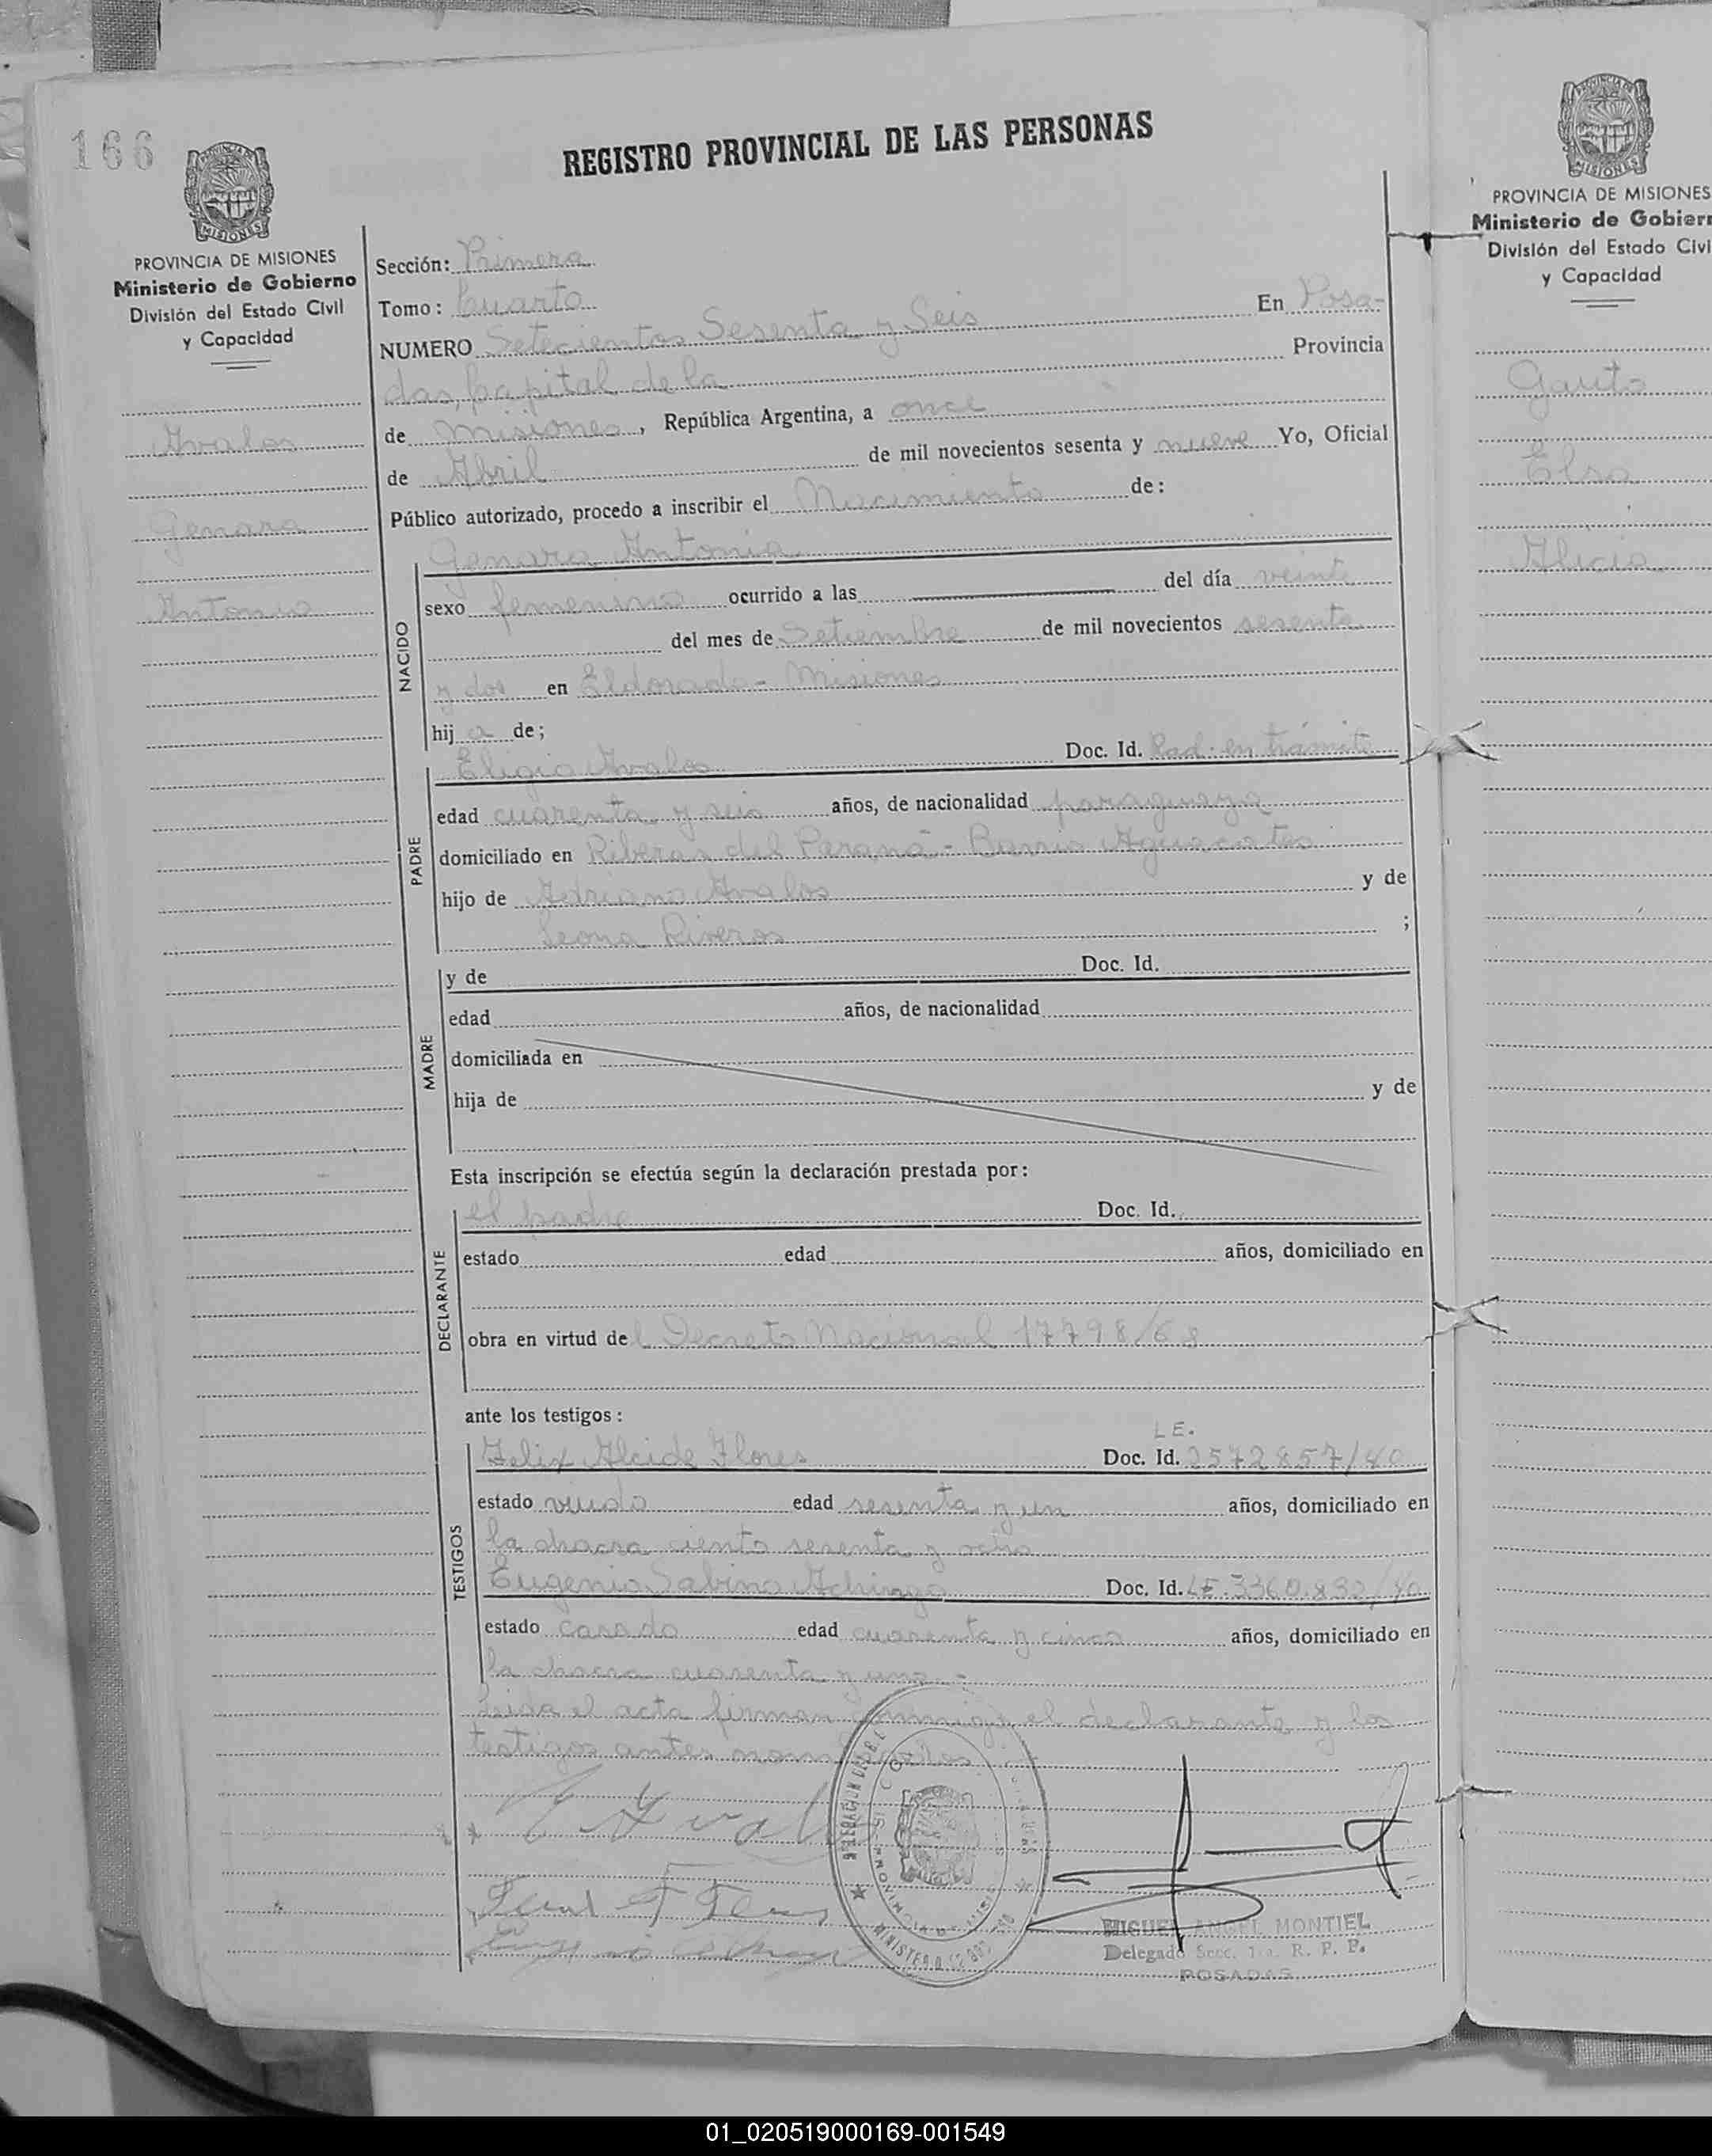 166
REGISTRO PROVINCIAL DE LAS PERSONAS
MISIONES
PROVINCIA DE MISIONES
Ministerio de Gobierno
División del Estado Civil
y Capacidad
Avalos
Genara
Antonia
Sección: Primera
Tomo: Cuarto
NUMERO Setecientos Sesenta y Seis En Posa-
das, Capital de la Provincia
de Misiones, República Argentina, a once
de Abril de mil novecientos sesenta y nueve Yo, Oficial
Público autorizado, procedo a inscribir el Nacimiento de:
Genara Antonia
NACIDO
sexo femenino ocurrido a las del día veinte
del mes de Setiembre de mil novecientos sesenta
y dos en Eldorado - Misiones
hij a de;
PADRE
Eligio Avalos Doc. Id. Rad. en trámite
edad cuarenta y seis años, de nacionalidad paraguaya
domiciliado en Riberas del Paraná - Barrio Aguacates
hijo de Adriano Avalos y de
Leona Riveros ;
MADRE
y de Doc. Id.
edad años, de nacionalidad
domiciliada en
hija de y de
Esta inscripción se efectúa según la declaración prestada por:
DECLARANTE
el padre Doc. Id.
estado edad años, domiciliado en
obra en virtud del Decreto Nacional 17798/68
ante los testigos:
TESTIGOS
L.E.
Felix Alcide Flores Doc. Id. 2572857/40
estado viudo edad sesenta y un años, domiciliado en
la chacra ciento sesenta y ocho
Eugenio Sabino Doc. Id. LE.3360.832/40
estado casado edad cuarenta y cinco años, domiciliado en
la chacra cuarenta y uno.-
Leida el acta firman conmigo el declarante y los
testigos antes nombrados
MIGUEL ANGEL MONTIEL
Delegado Secc. 1ra. R. P. P.
POSADAS
MISIONES
PROVINCIA DE MISIONES
Ministerio de Gobier
División del Estado Civi
y Capacidad
Gauto
Elsa
Alicia
01_020519000169-001549